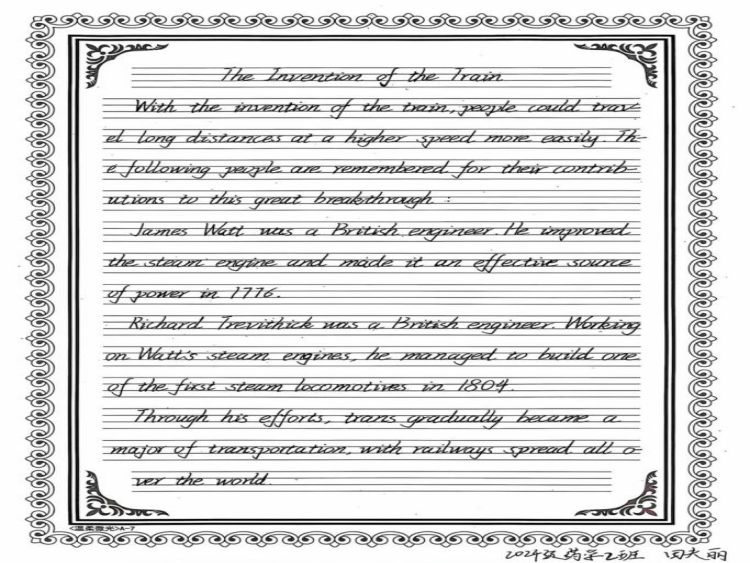 The Invention of the Train
With the invention of the train, people could trav-
el long distances at a higher speed more easily. Th-
e following people are remembered for their contrib-
utions to this great breakthrough :
James Watt was a British engineer. He improved
the steam engine and made it an effective source
of power in 1776.
Richard Trevithick was a British engineer. Working
on Watt's steam engines, he managed to build one
of the first steam locomotives in 1804.
Through his efforts, trans gradually became a
major of transportation, with railways spread all o-
ver the world.
<温柔微光>A-7
2024级药学2班 田大丽